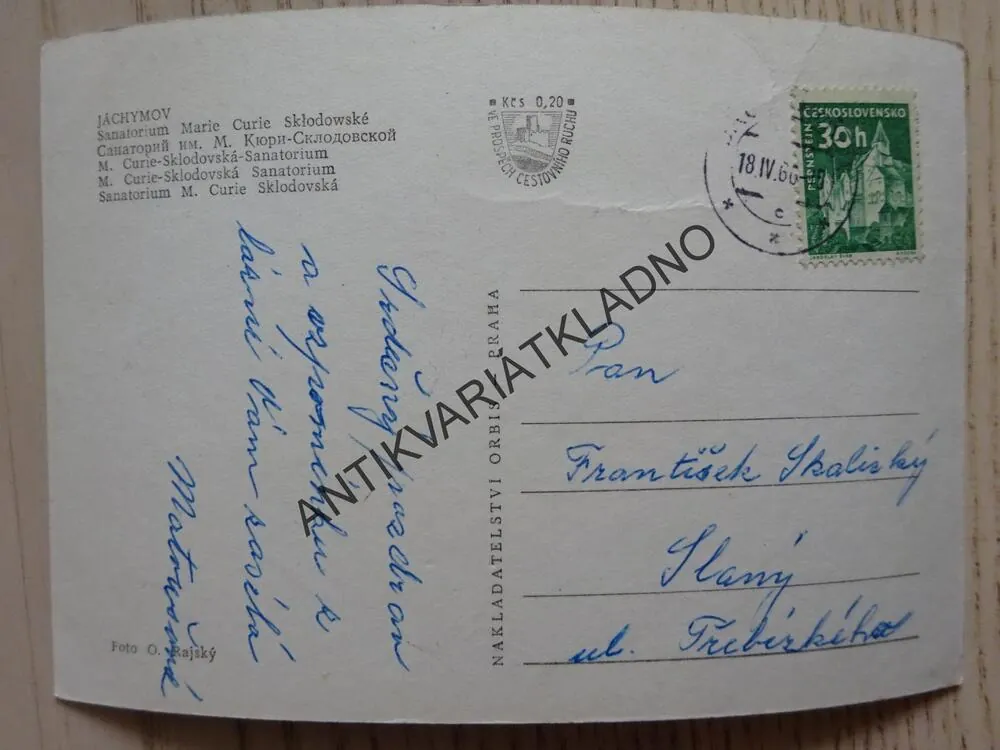 JÁCHYMOV
Sanatorium Marie Curie Skłodowské
Санаторий им. М. Кюри-Склодовской
M. Curie-Sklodovská-Sanatorium
M. Curie-Sklodovská Sanatorium
Sanatorium M. Curie Sklodovská
Kčs 0,20
VE PROSPĚCH CESTOVNÍHO RUCHU
ČESKOSLOVENSKO
30h
PERNŠTEJN
18.IV.66
c
Srdečný pozdrav
a vzpomínku z
lázní Vám zasílá
Matoušová
NAKLADATELSTVÍ ORBIS PRAHA
Pan
František Skalický
Slaný
ul. Třebízkého
Foto O. Rajský
ANTIKVARIATKLADNO